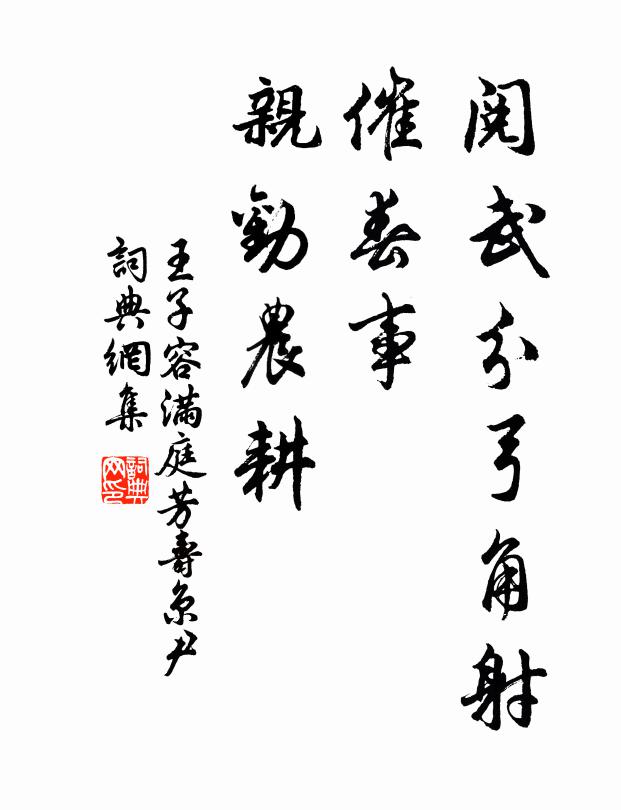 閱武分弓角射
催春事
親勸農耕
王子容滿庭芳壽京尹
詞典網集
詞典網印